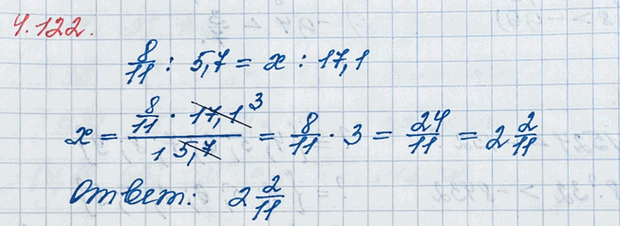 4.122.
8/11 : 5,7 = x : 17,1
x = (8/11 · 17,1 3) / (1 5,7) = 8/11 · 3 = 24/11 = 2 2/11
Ответ: 2 2/11